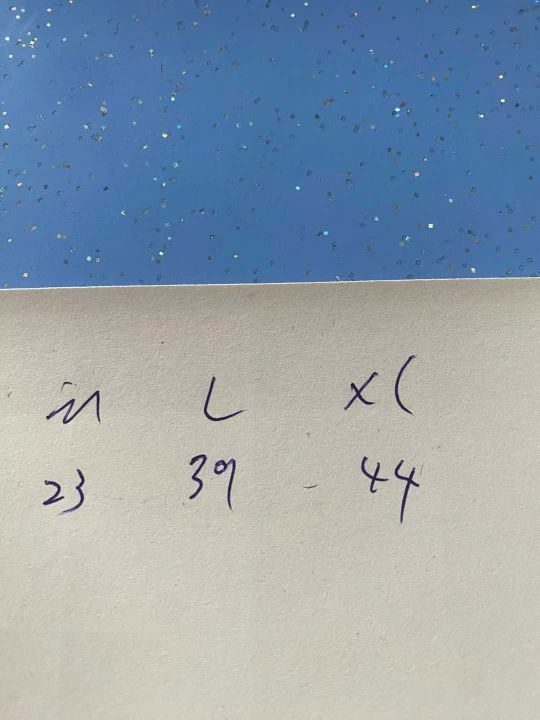 M L XL
23 39 - 44